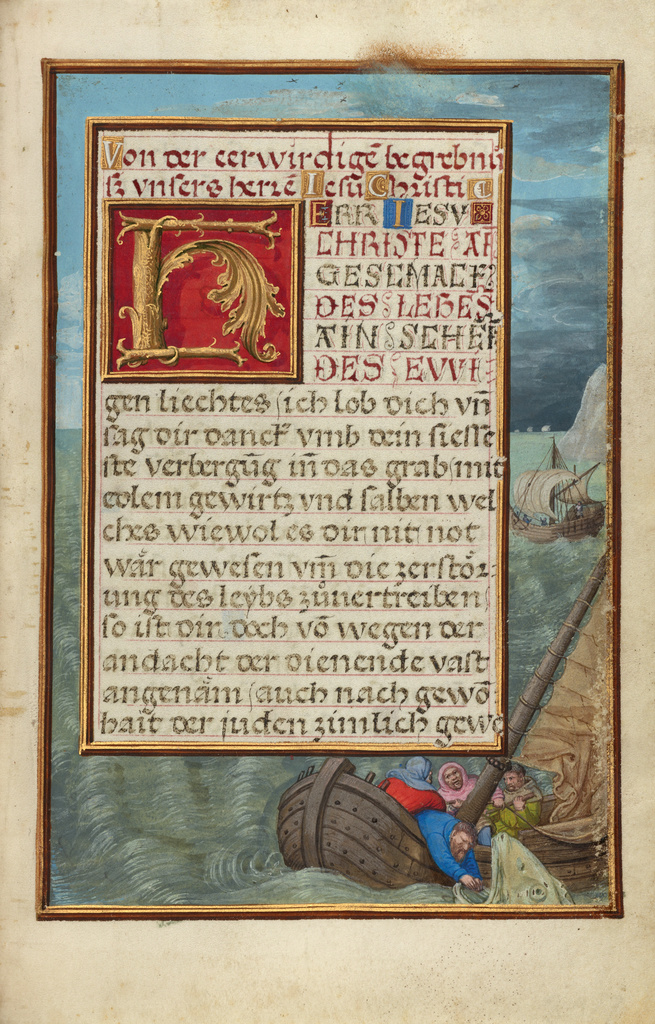 Von der eerwirdigē begrebnu
ſz vnſers herrē Ieſu Chriſti
HERR IESV
CHRISTE AI
GESCMACK
DES LEBES
AIN SCHEI
DES EWI
gen liechtes ſich lob dich vn̄
ſag dir danck vmb dein ſieſſe
ſte verbergūg in das grab mit
edlem gewirtz vnd ſalben wel
ches wiewol es dir nit not
wår geweſen vm̄ die zerſtör
ung des leybs zůuertreiben
ſo iſt dir doch vō wegen der
andacht der dienende vaſt
angenåm auch nach gewō
hait der juden zimlich gewe